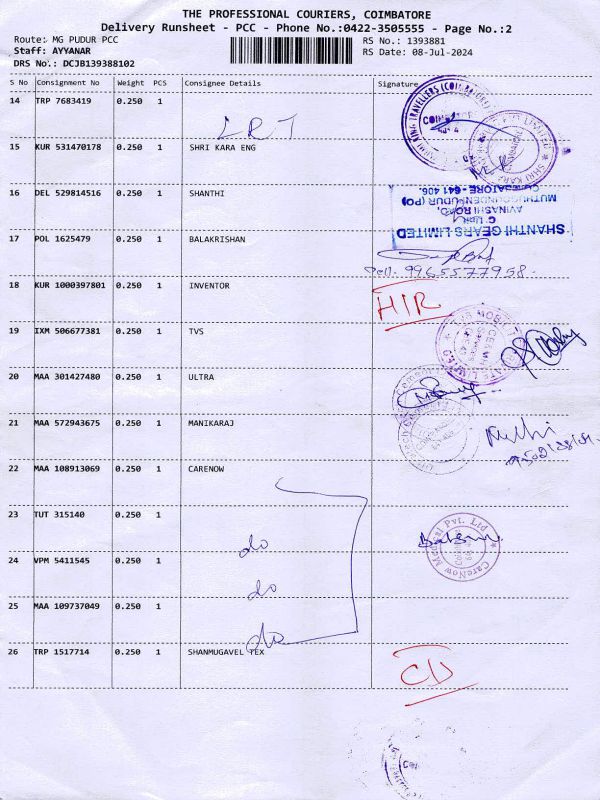 THE PROFESSIONAL COURIERS, COIMBATORE
Delivery Runsheet - PCC - Phone No.:0422-3505555 - Page No.:2
Route: MG PUDUR PCC
RS No.: 1393881
Staff: AYYANAR
RS Date: 08-Jul-2024
DRS No.: DCJB139388102
S No Consignment No Weight PCS Consignee Details Signature
14 TRP 7683419 0.250 1 LRT
15 KUR 531470178 0.250 1 SHRI KARA ENG
16 DEL 529814516 0.250 1 SHANTHI
SHANTHI GEARS LIMITED
AVINASHI ROAD,
MUTHUGOUNDENPUDUR (PO)
COIMBATORE - 641 406.
17 POL 1625479 0.250 1 BALAKRISHAN
Cell. 9965577958
18 KUR 1000397801 0.250 1 INVENTOR HIR
19 IXM 506677381 0.250 1 TVS
20 MAA 301427480 0.250 1 ULTRA
21 MAA 572943675 0.250 1 MANIKARAJ
22 MAA 108913069 0.250 1 CARENOW
23 TUT 315140 0.250 1 do
CareNow Medical Pvt. Ltd
24 VPM 5411545 0.250 1 do
25 MAA 109737049 0.250 1 do
26 TRP 1517714 0.250 1 SHANMUGAVEL TEX CD